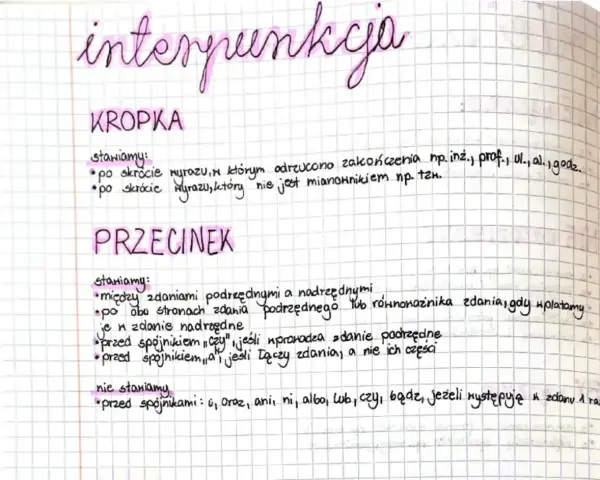 interpunkcja
KROPKA
stawiamy:
• po skrócie wyrazu, w którym odrzucono zakończenia np. inż., prof., ul., al., godz.
• po skrócie wyrazu, który nie jest mianownikiem np. tzn.
PRZECINEK
stawiamy:
• między zdaniami podrzędnymi a nadrzędnymi
• po obu stronach zdania podrzędnego lub równoważnika zdania, gdy wplatamy
je w zdanie nadrzędne
• przed spójnikiem „czy", jeśli wprowadza zdanie podrzędne
• przed spójnikiem „a", jeśli łączy zdania, a nie ich części
nie stawiamy
• przed spójnikami: i, oraz, ani, ni, albo, lub, czy, bądź, jeżeli występują w zdaniu 1